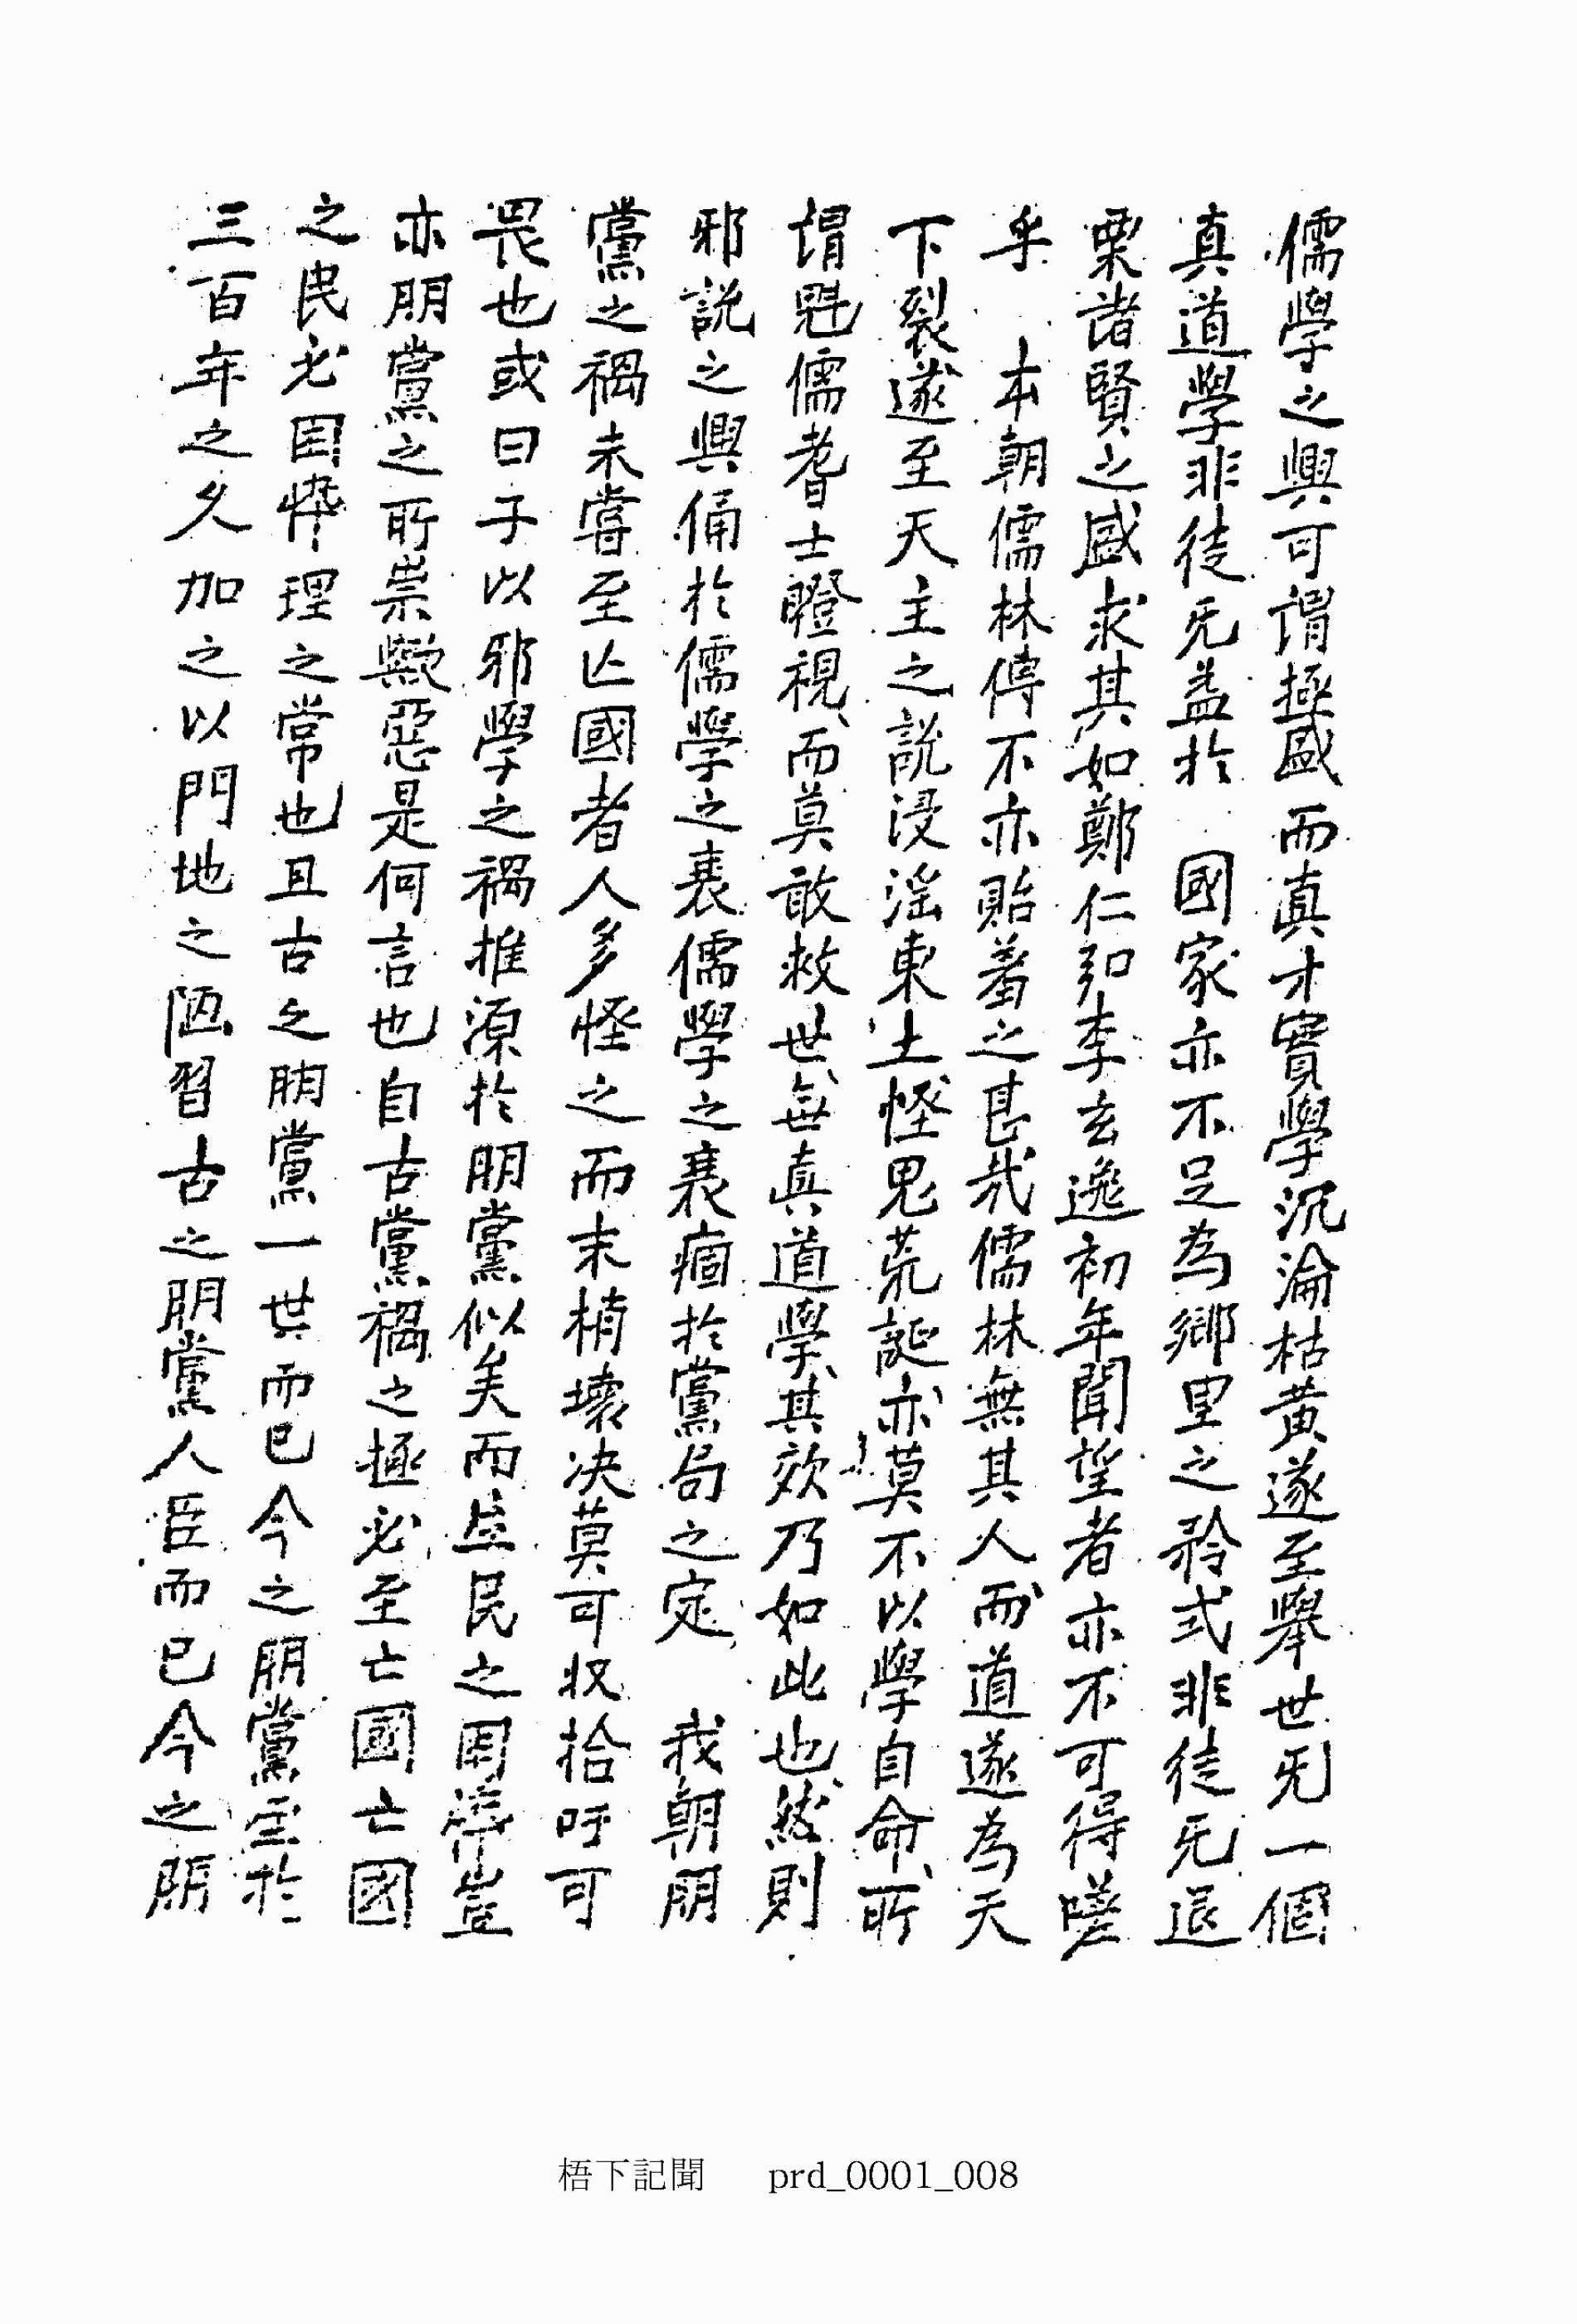 儒學之興可謂極盛而真才實學沉淪枯黃遂至擧世旡一個
真道學非徒旡益於 國家亦不足為鄉里之矜式非徒旡退
栗諸賢之盛求其如鄭仁弘李玄逸初年聞望者亦不可得嗟
乎 本朝儒林傳不亦貽羞之甚哉儒林無其人而道遂為天
下裂遂至天主之說浸淫東土怪鬼荒誕亦莫不以學自命所
謂魁儒耆士瞪視而莫敢救世無真道學其效乃如此也然則
邪說之興俑於儒學之衰儒學之衰痼於黨局之定 我朝朋
黨之禍未嘗至亡國者人多怪之而末梢壞决莫可収拾吁可
畏也或曰子以邪學之禍推源於朋黨似矣而生民之困悴豈
亦朋黨之所祟歟惡是何言也自古黨禍之極必至亡國亡國
之民必困悴理之常也且古之朋黨一世而已今之朋黨至於
三百年之久加之以門地之陋習古之朋黨人臣而已今之朋
梧下記聞 prd_0001_008